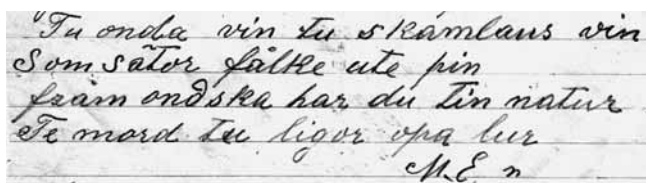 Tu onda vin tu skamlaus vin
Som sätor fålke ute pin
fråm ondska har du tin natur
Te mord tu ligor opa lur
M. E. n